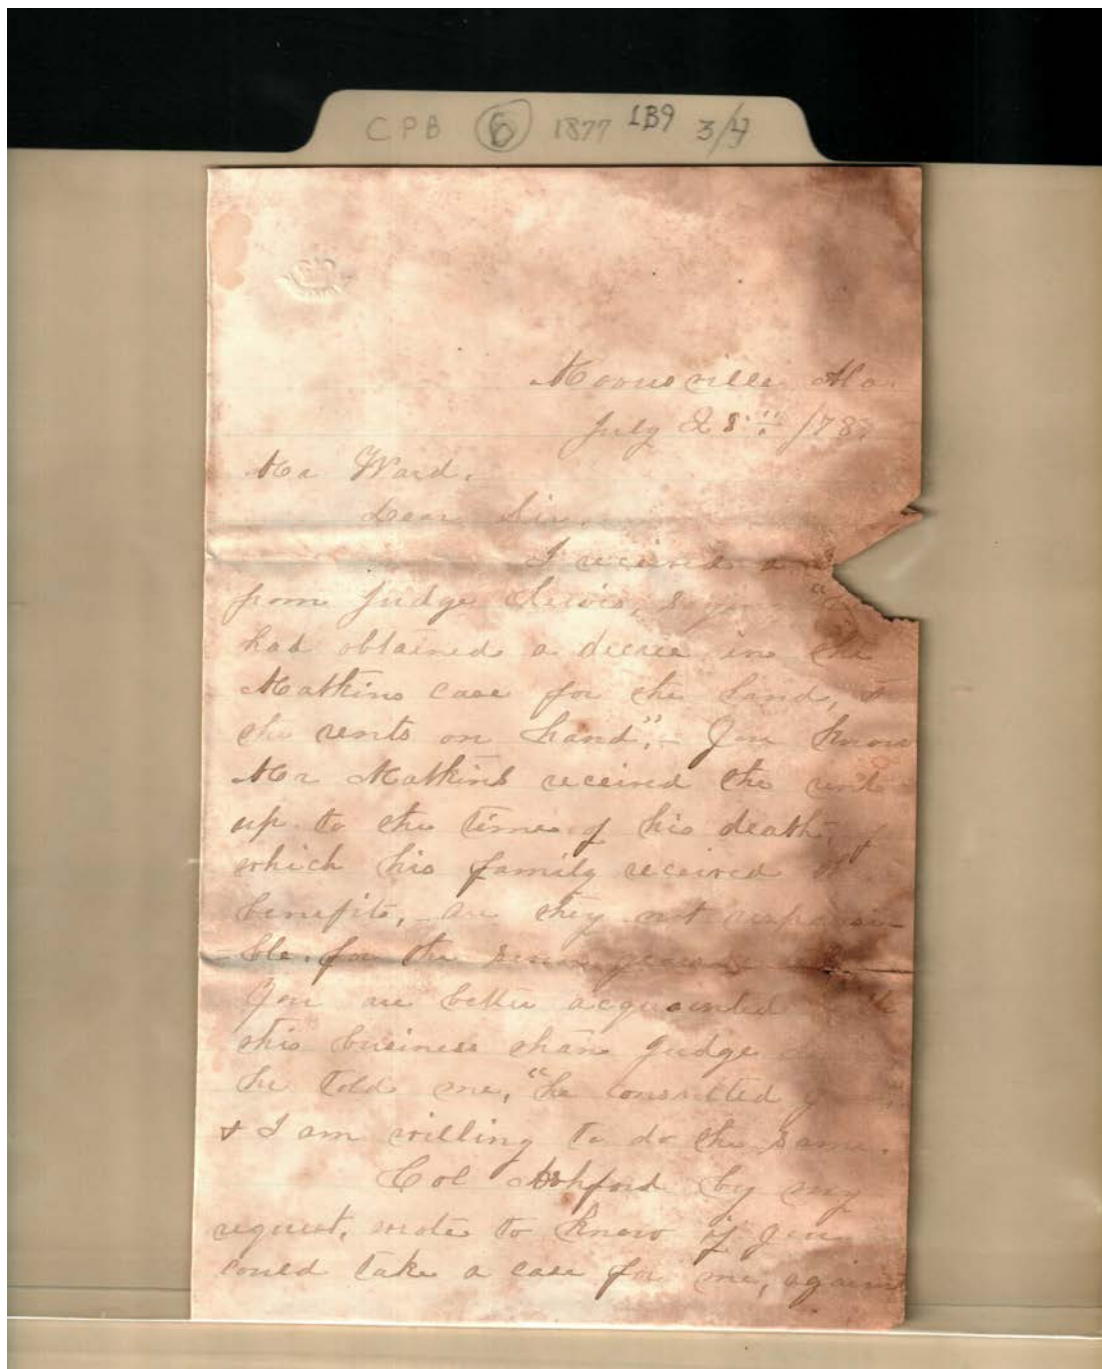 CPB 6 1877 1B9 3/4
Mooresville Ala.
July 28th /78
Mr Ward.
Dear Sir,
I received a
from Judge Lewis, saying "
had obtained a decree in the
Matkins case for the land, &
the rents on hand". - You know
Mr Matkins received the rent
up to the time of his death, &
which his family received
benefits, - are they not responsi-
-ble for the
You are better acquainted with
this business than Judge
he told me, "he consulted
& I am willing to do the same.
Col Ashford by my
request, wrote to know if you
could take a case for me, against